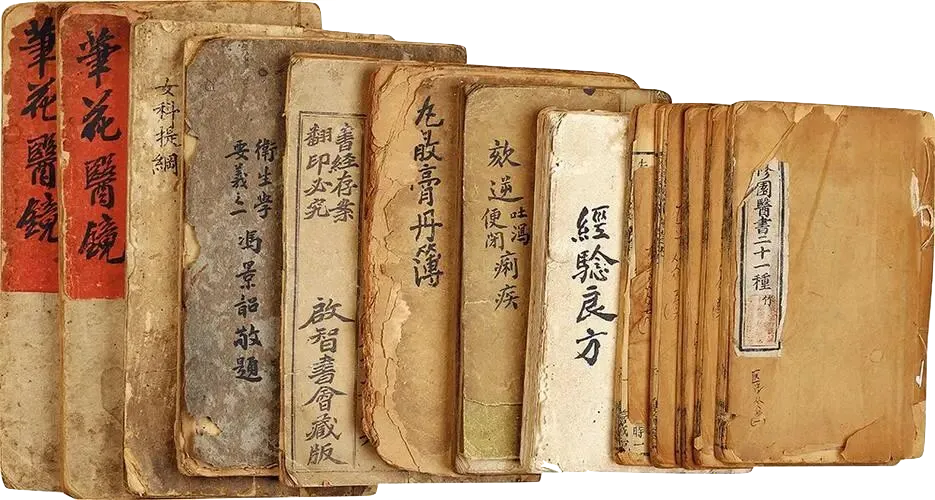 筆花醫鏡
華花醫鏡
女科提綱
衛生學
要義之一
馮景韶敬題
書經存案
翻印必究
啟智書會藏版
丸散膏丹簿
欬逆
吐瀉
便閉
痢疾
經驗良方
修園醫書二十一種